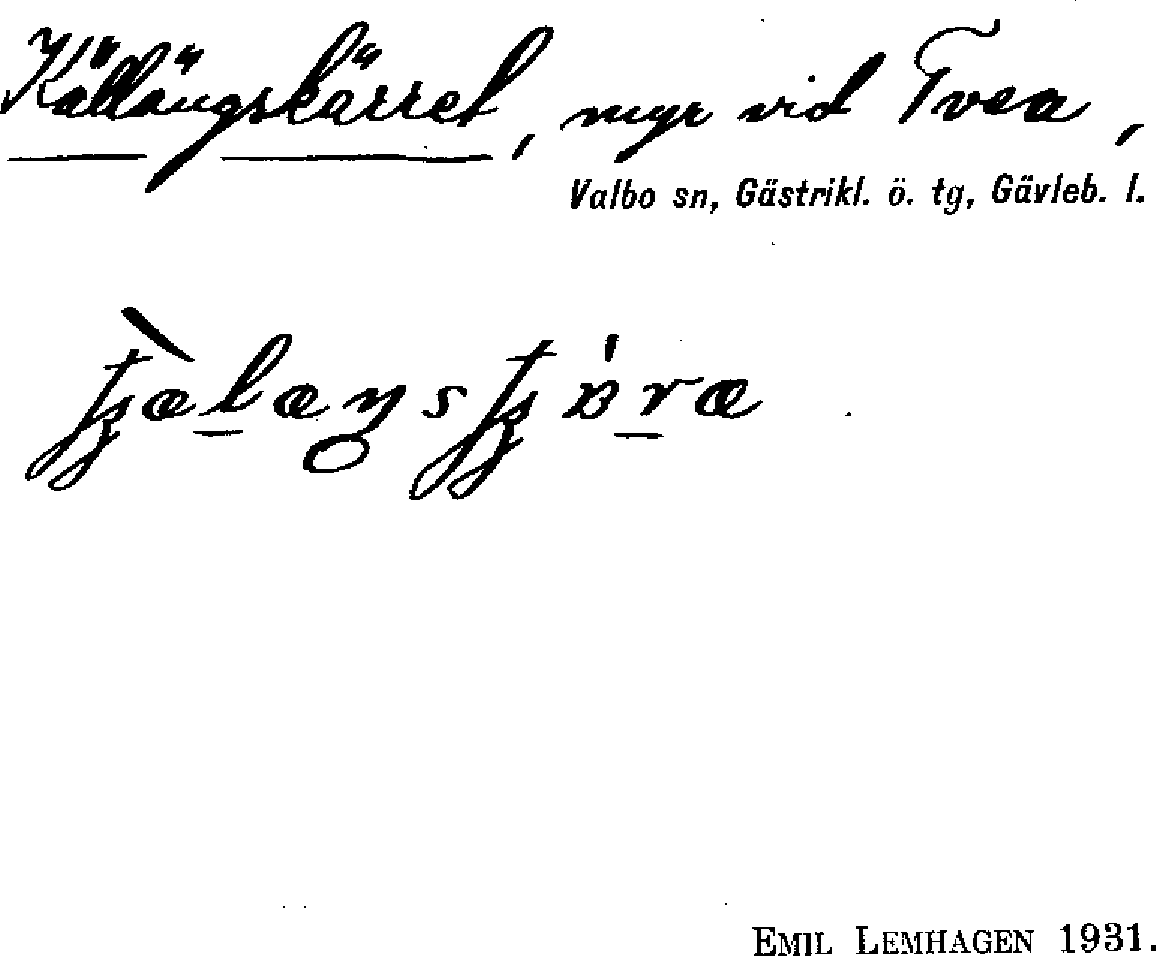 Källängskärret, myr vid Tvea,
Valbo sn, Gästrikl. ö. tg, Gävleb. l.
EMIL LEMHAGEN 1931.